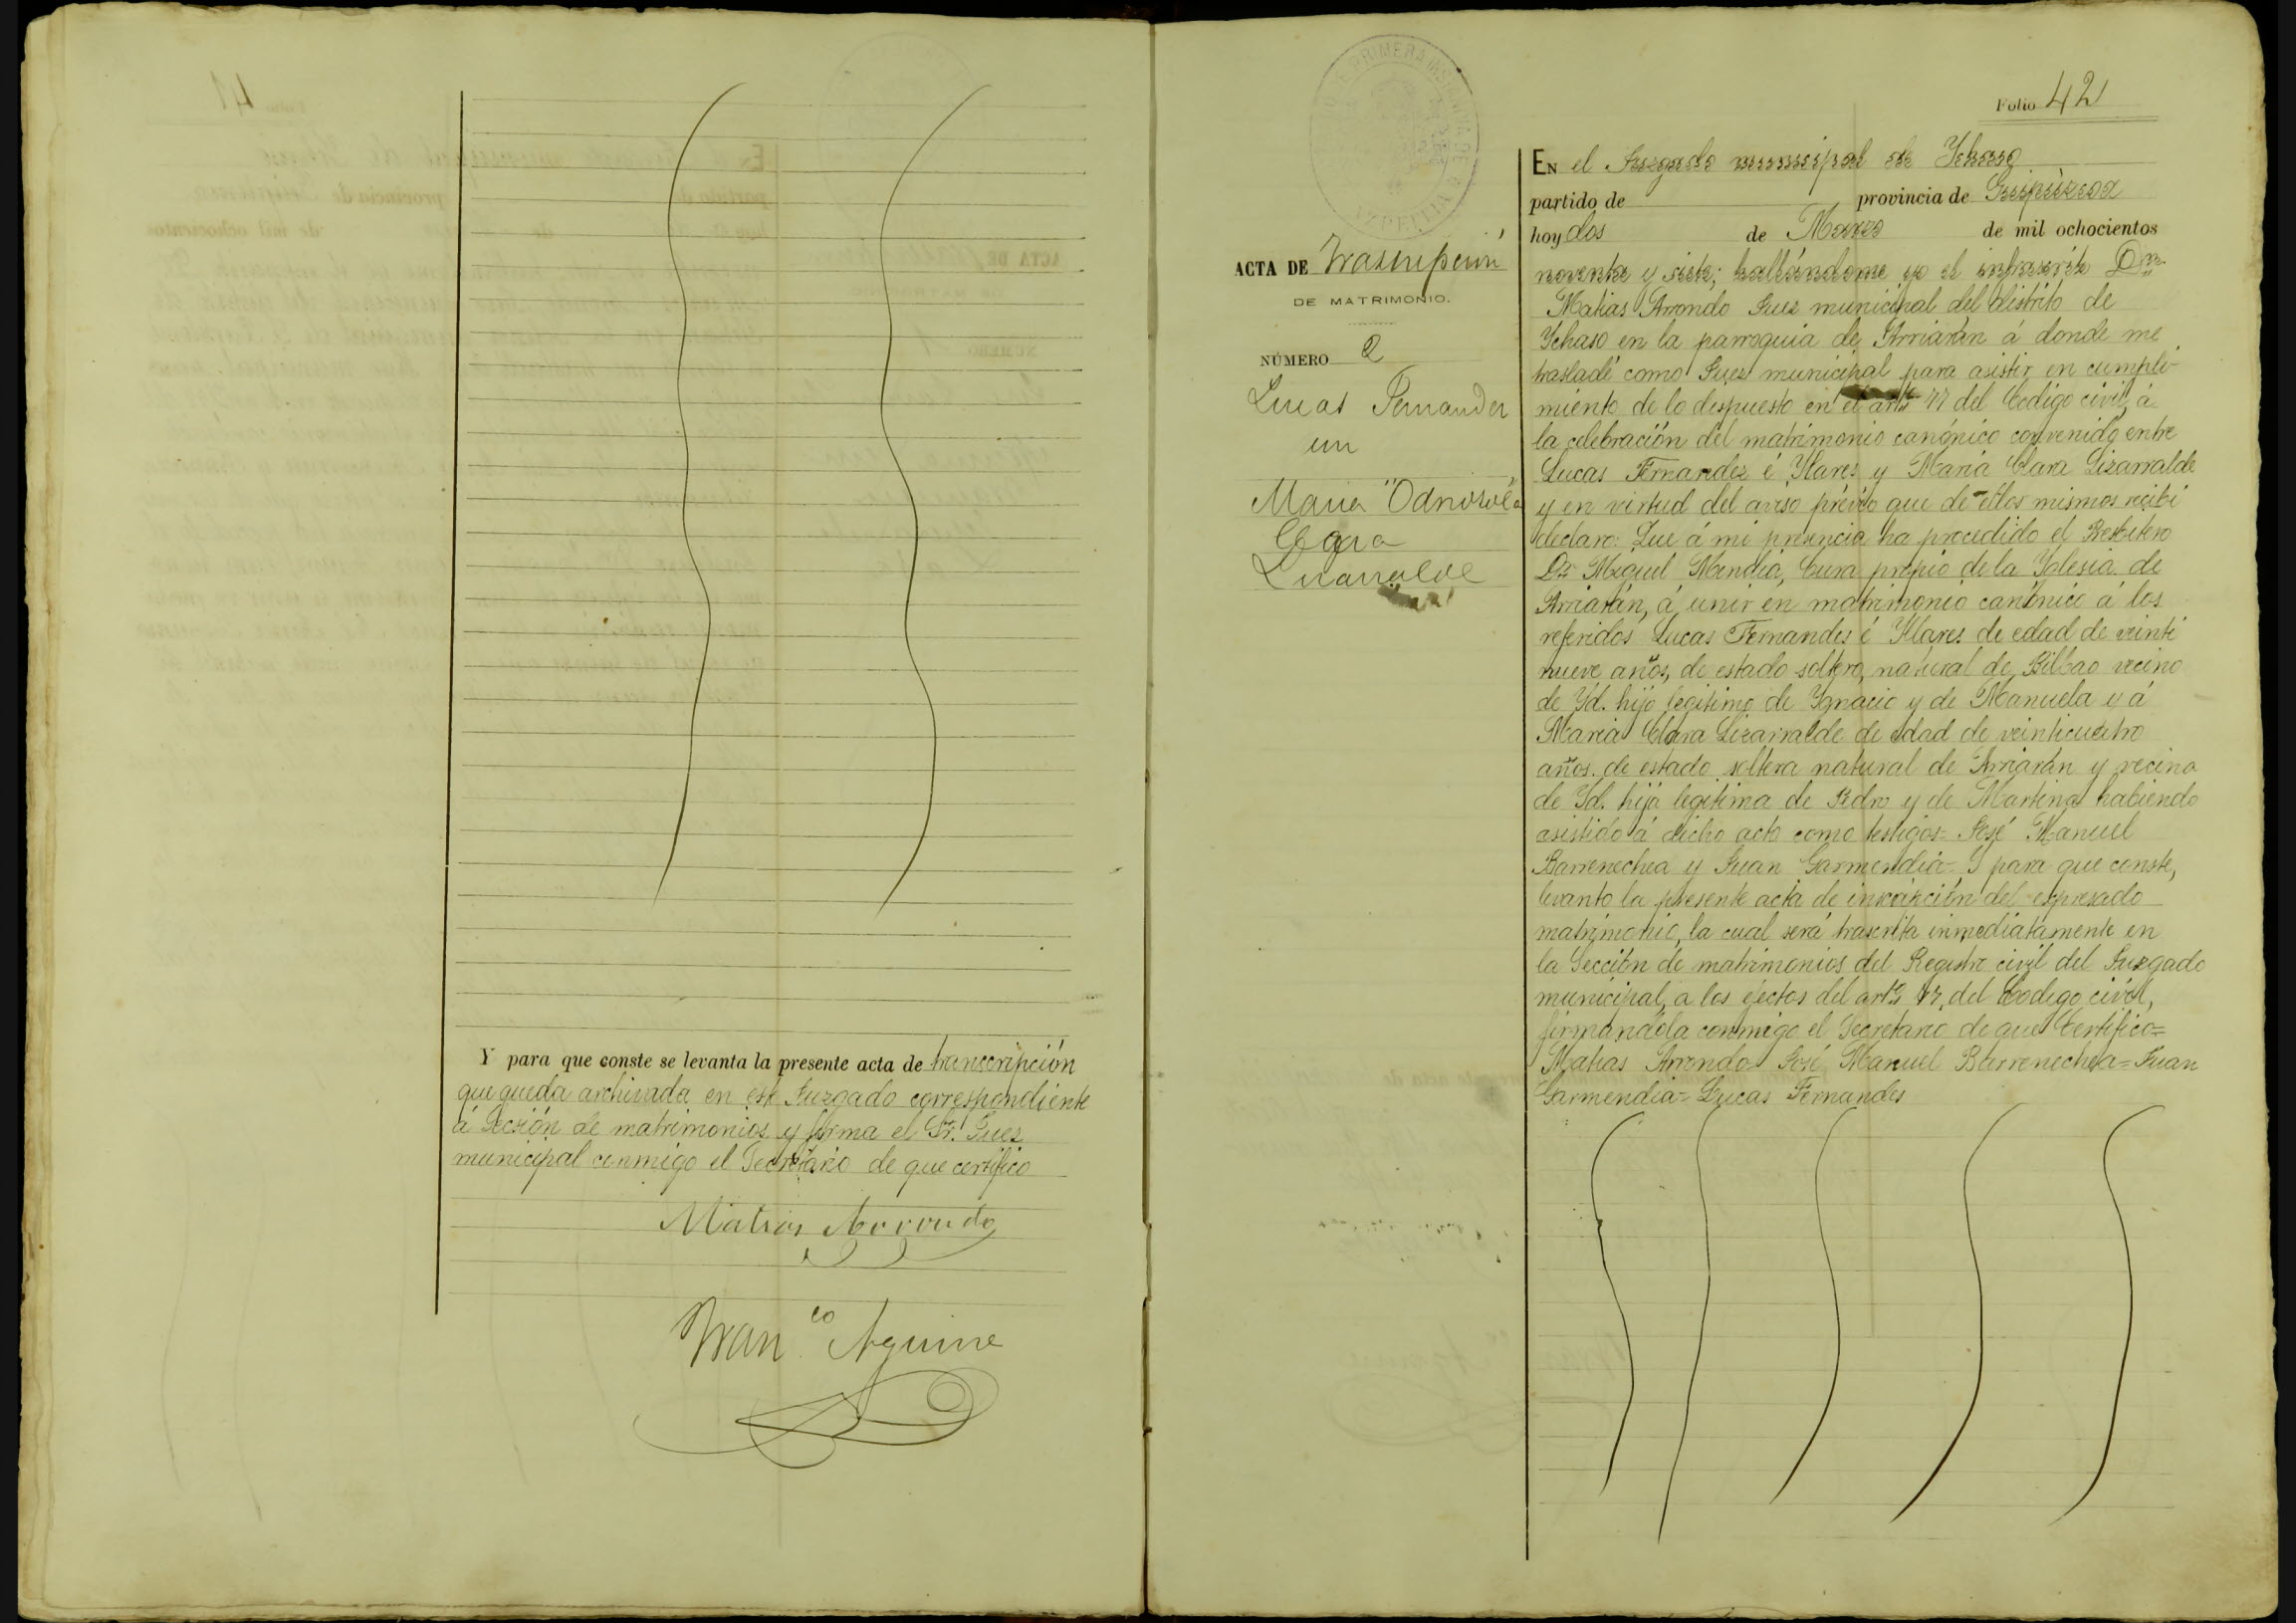 Y para que conste se levanta la presente acta de transcripción
que queda archivada en este Juzgado correspondiente
á Scción de matrimonios y firma el Sr. Juez
municipal conmigo el Secretario de que certifico
Matias Arrondo
Fran.co Aguirre
Folio 42
ACTA DE Trascripción
DE MATRIMONIO.
NÚMERO 2
Lucas Fernandez
Maria
Clara
Lizarralde
En el Juzgado municipal de Ychaso
partido de provincia de Guipúzcoa
hoy dos de Marzo de mil ochocientos
noventa y siete; hallándome yo el infrascrito Dn.
Matias Arrondo Juez municipal del distrito de
Ychaso en la parroquia de Arriarán á donde me
trasladé como Juez municipal para asistir en cumpli-
miento de lo dispuesto en el artº 77 del Codigo civil, á
la celebración del matrimonio canónico convenido entre
Lucas Fernandez é Yllares y Maria Clara Lizarralde
y en virtud del aviso prévio que de ellos mismos recibi
declaro: Que á mi presencia ha procedido el Presbitero
Dn Miguel Mendia, Cura propio de la Yglesia de
Arriarán, á unir en matrimonio canónico á los
referidos Lucas Fernandes é Yllares de edad de veinti
nueve años, de estado soltero, natural de Bilbao vecino
de Yd. hijo legitimo de Ygnacio y de Manuela y á
Maria Clara Lizarralde de edad de veinticuatro
años de estado soltera natural de Arriarán y vecina
de Yd. hija legitima de Pedro y de Martina habiendo
asistido á dicho acto como testigos= José Manuel
Barrenechea y Juan Garmendia= Y para que conste,
levanto la presente acta de inscripción del expresado
matrimonio, la cual será trascrita inmediatamente en
la Sección de matrimonios del Registro civil del Juzgado
municipal, a los efectos del artº 77, del Codigo civil,
firmandola conmigo el Secretario de que Certifico=
Matias Arrondo José Manuel Barrenechea= Juan
Garmendia= Lucas Fernandes